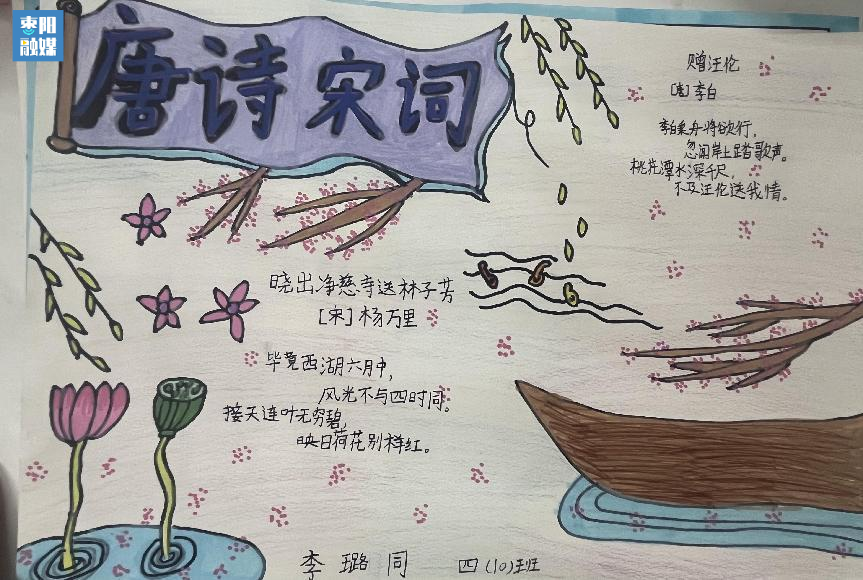 枣阳
融媒
唐诗宋词
赠汪伦
[唐]李白
李白乘舟将欲行,
忽闻岸上踏歌声。
桃花潭水深千尺,
不及汪伦送我情。
晓出净慈寺送林子芳
[宋]杨万里
毕竟西湖六月中,
风光不与四时同。
接天连叶无穷碧,
映日荷花别样红。
李璐同
四(10)班